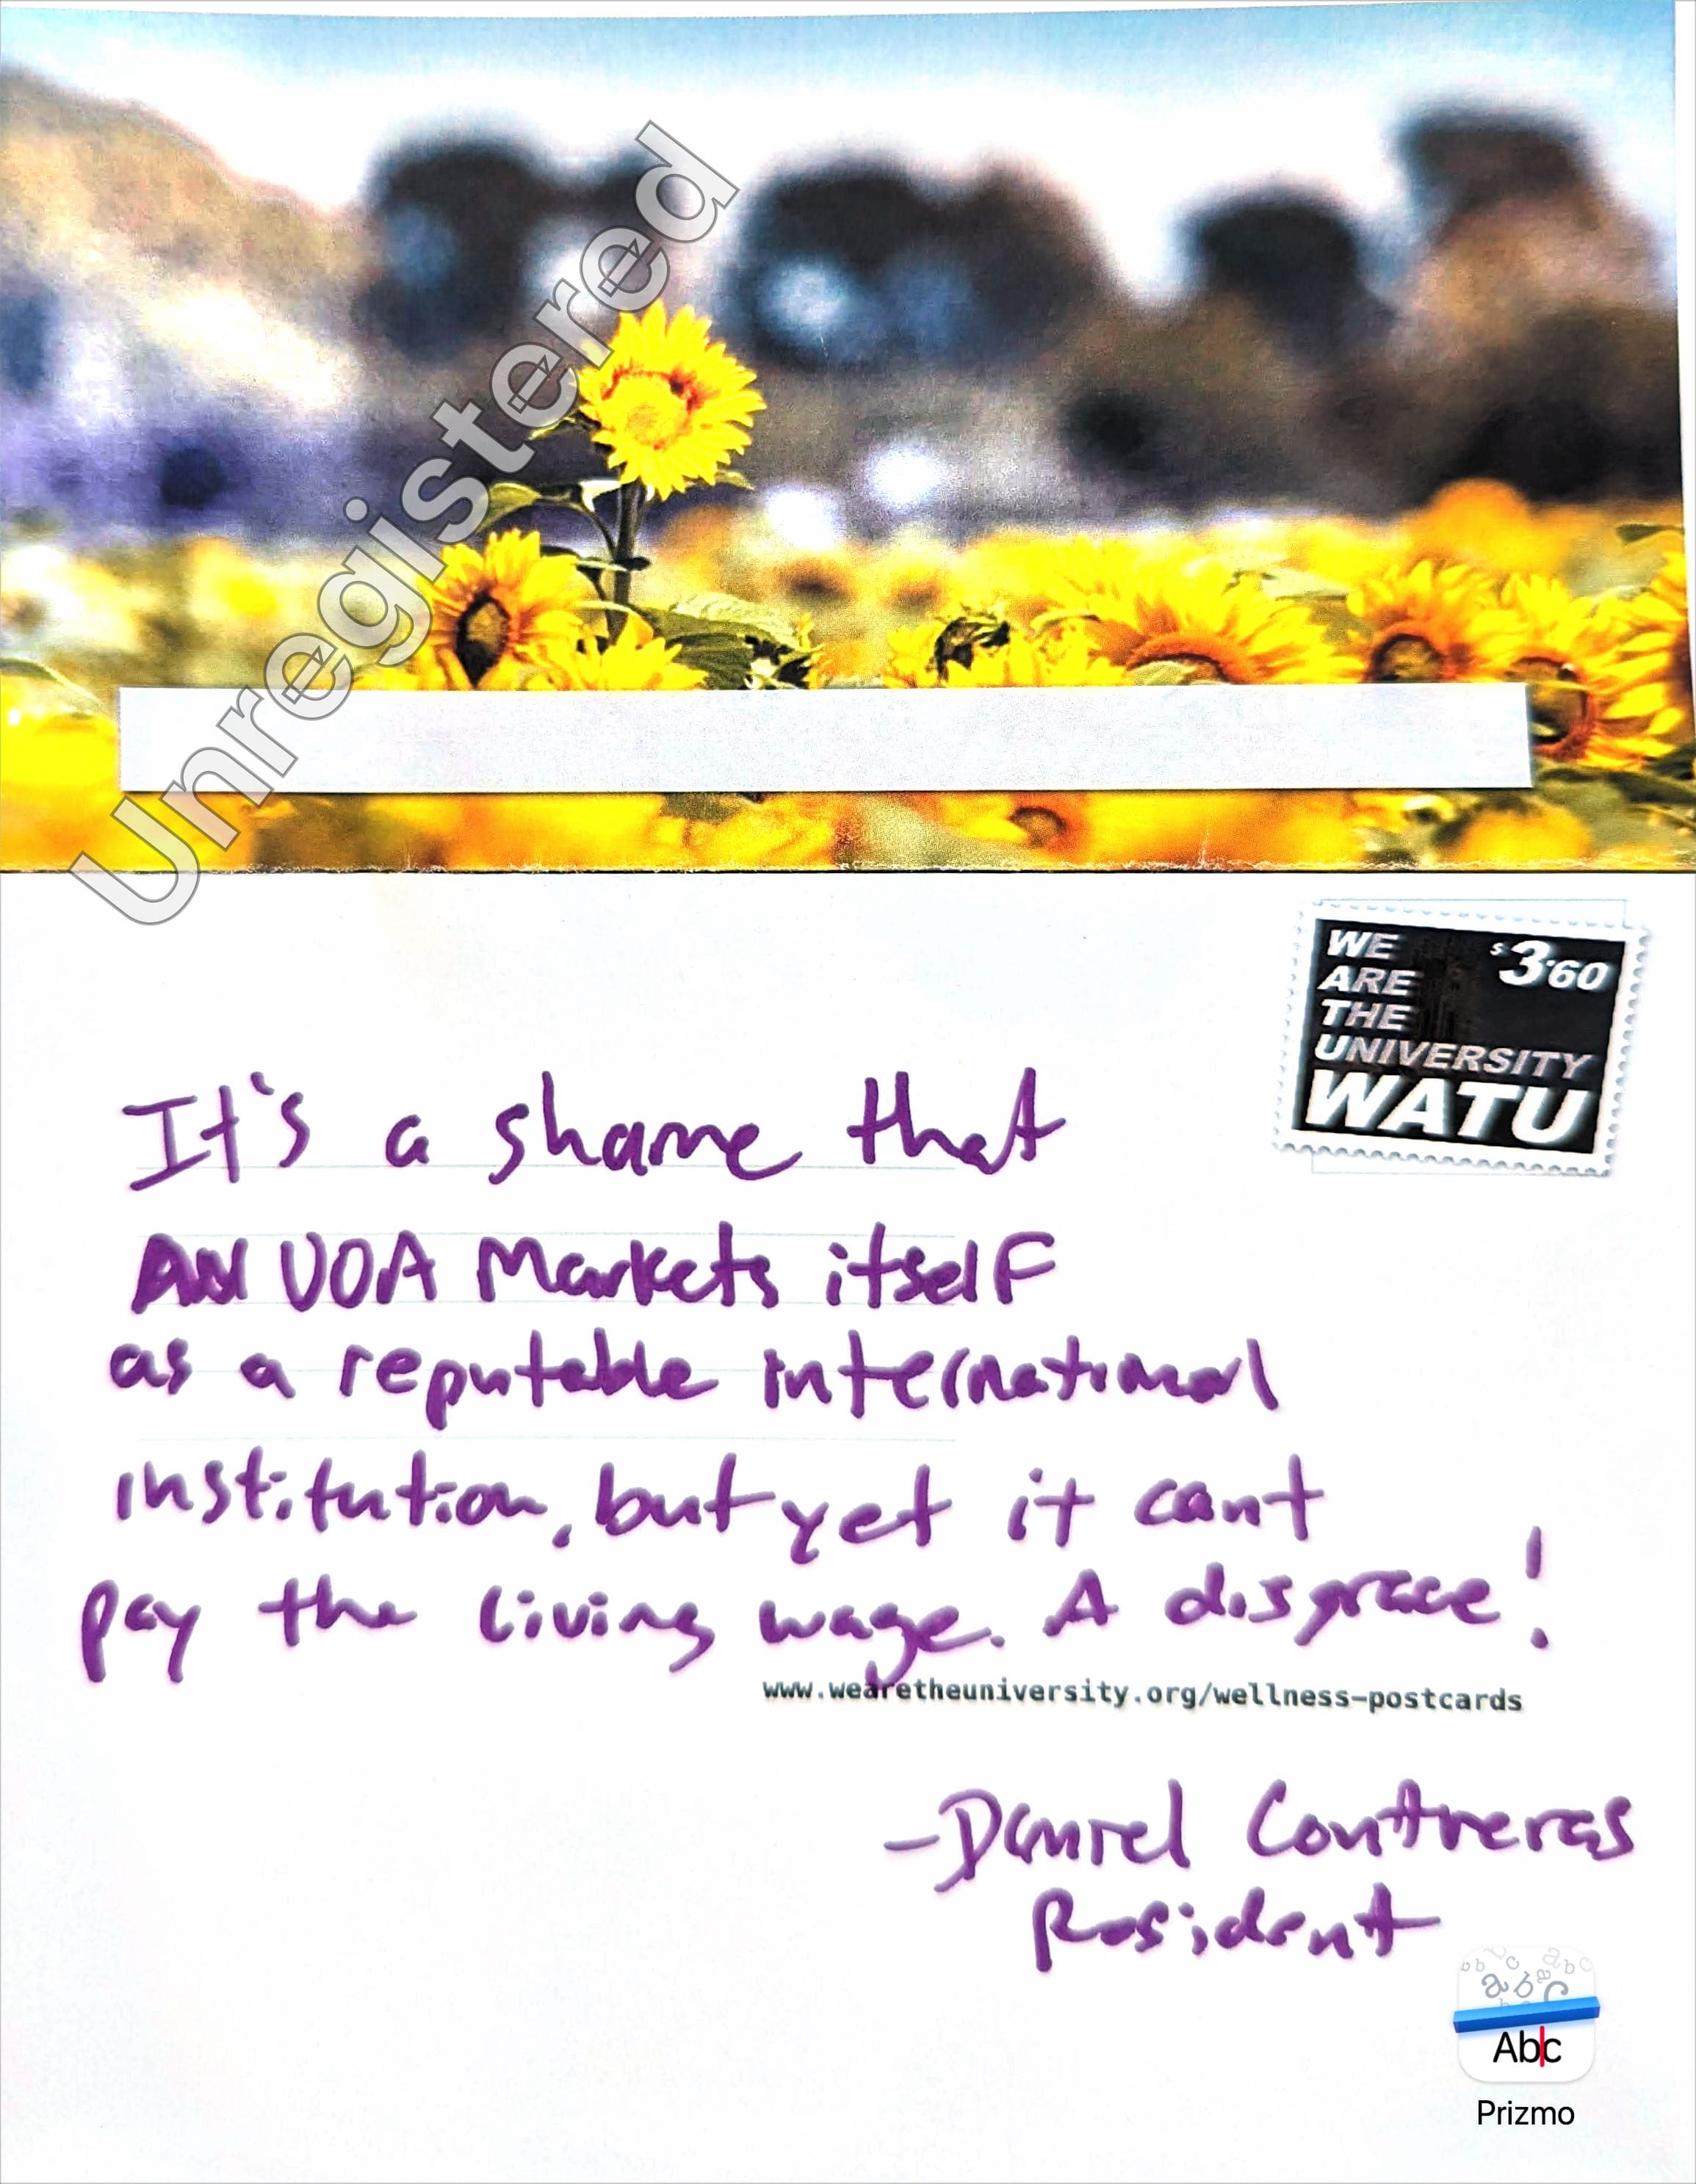 Unregistered
WE
ARE
THE
UNIVERSITY
WATU
$3.60
It's a shame that
AN UOA Markets itself
as a reputable international
institution, but yet it cant
pay the living wage. A disgrace!
www.wearetheuniversity.org/wellness-postcards
-Daniel Contreras
Resident
Abc
Prizmo